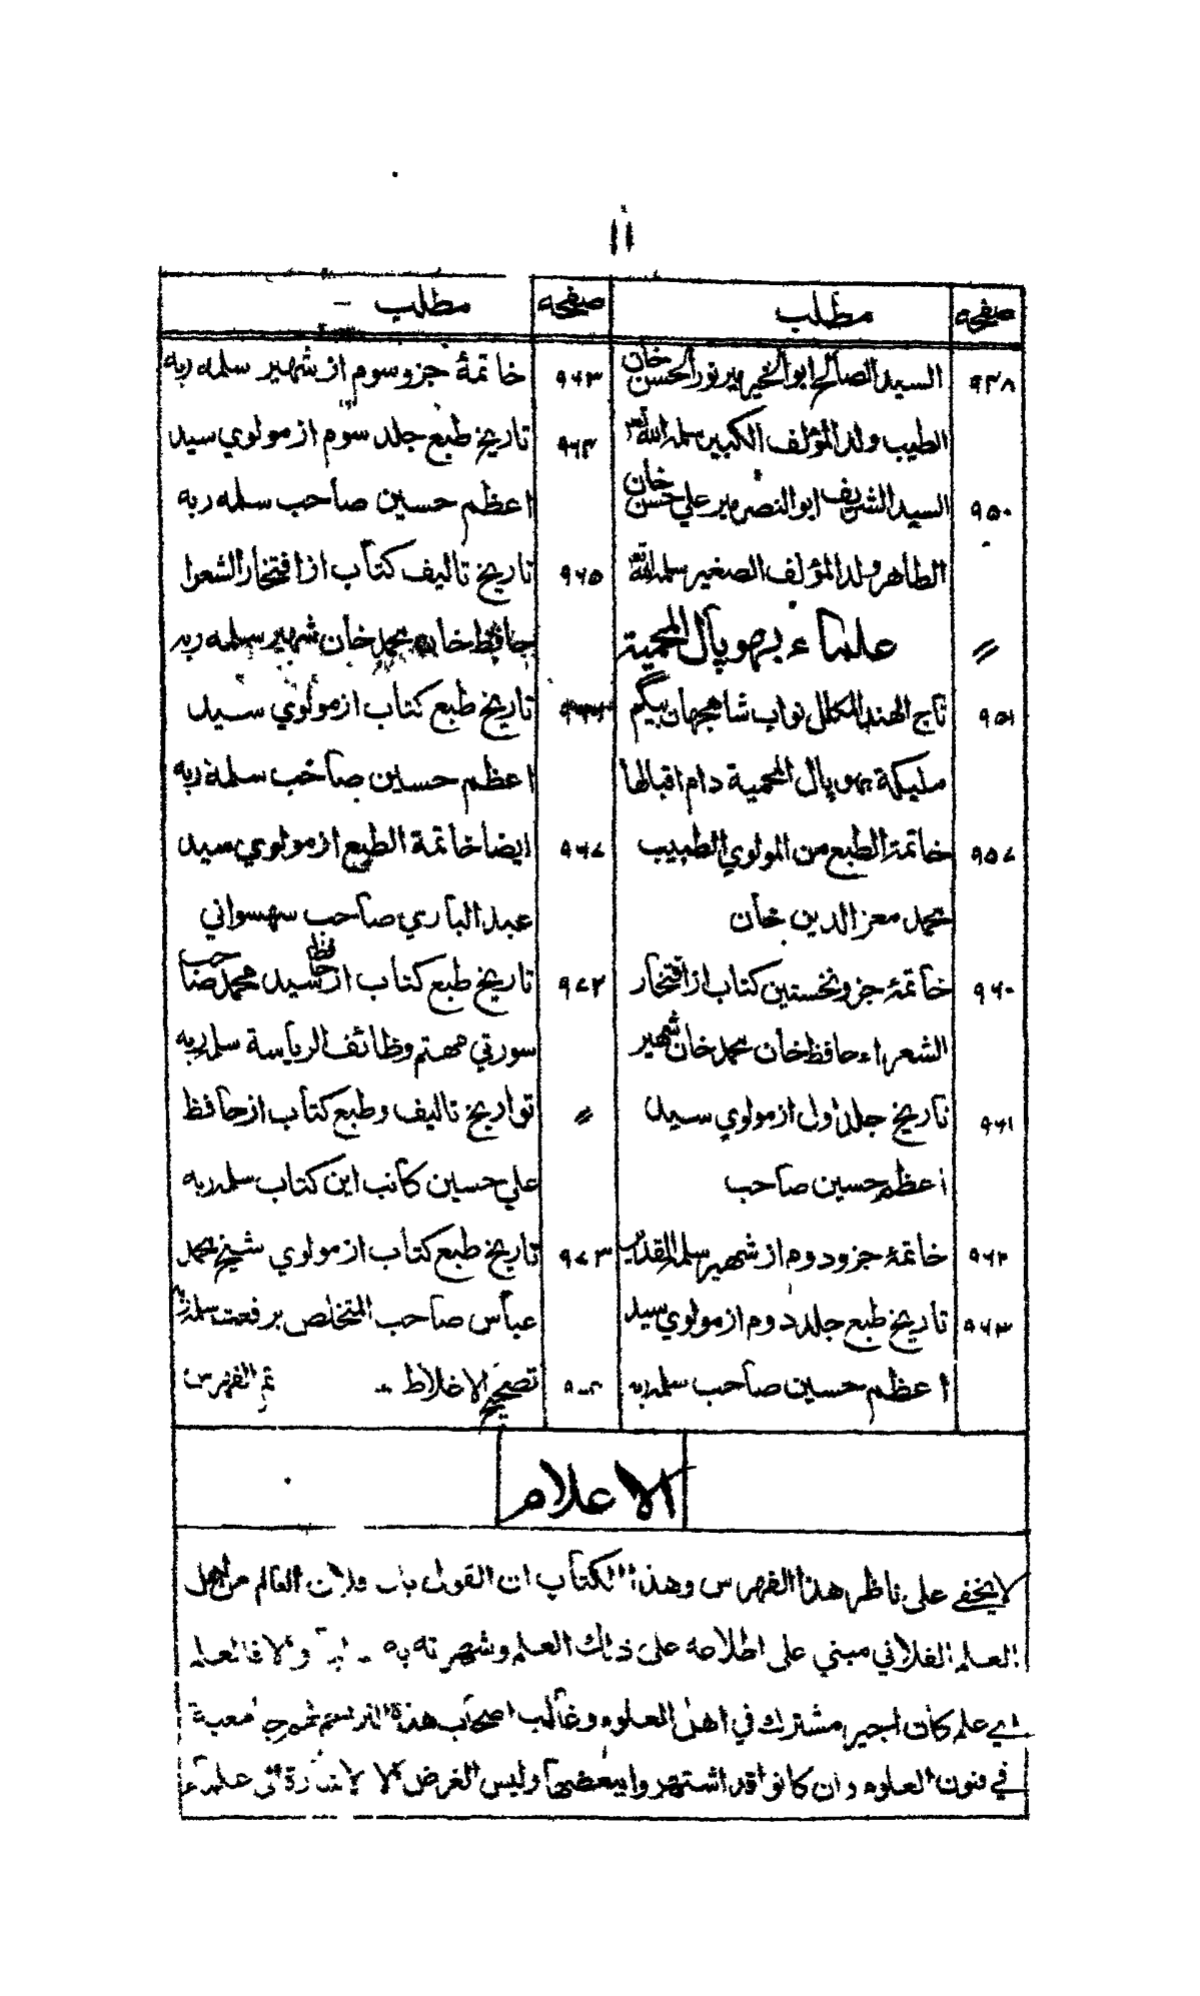 ١١
صفحه مطلب صفحه مطلب
٩٣٨ السيد الصالح ابو الخير مير نور الحسن خان
الطيب ولد المؤلف الكبير سلمه الله
٩٥٠ السيد الشريف ابو النصر مير علي حسن خان
الطاهر ولد المؤلف الصغير سلمه الله
〃 علماء بهوپال المحمية
٩٥١ تاج الهند المكلل نواب شاهجهان بيگم
مليكة بهوپال المحمية دام اقبالها
٩٥٧ خاتمة الطبع من المولوي الطبيب
محمد معز الدين خان
٩٦٠ خاتمۀ جزو نخستين كتاب از افتخار
الشعراء حافظ خان محمد خان شهير
٩٦١ تاريخ جلد اول از مولوي سيد
اعظم حسين صاحب
٩٦٢ خاتمۀ جزو دوم از شهير سلمه القدير
٩٦٣ تاريخ طبع جلد دوم از مولوي سيد
اعظم حسين صاحب سلمه ربه
٩٦٣ خاتمۀ جزو سوم از شهير سلمه ربه
٩٦٤ تاريخ طبع جلد سوم از مولوي سيد
اعظم حسين صاحب سلمه ربه
٩٦٥ تاريخ تاليف كتاب از افتخار الشعرا
حافظ خان محمد خان شهير سلمه ربه
تاريخ طبع كتاب از مولوي سيد
اعظم حسين صاحب سلمه ربه
٩٦٧ ايضا خاتمة الطبع از مولوي سيد
عبد الباري صاحب سهسواني
٩٧٢ تاريخ طبع كتاب از حافظ سيد محمد صاحب
سورتي مهتم وظائف الرياسة سلمه ربه
〃 تواريخ تاليف وطبع كتاب از حافظ
علي حسين كاتب اين كتاب سلمه ربه
٩٧٣ تاريخ طبع كتاب از مولوي شيخ محمد
عباس صاحب المتخلص برفعت سلمه ربه
تصحيح الاغلاط تم الفهرس
الاعلام
لا يخفى على ناظر هذا الفهرس وهذا الكتاب ان القول بان فلان العالم من اهل
العلم الفلاني مبني على اطلاعه على ذلك العلم وشهرته به والا فالعلم
اي علم كان اجير مشترك في اهل العلوم وغالب اصحاب هذه التراجم لهم جامعية
في فنون العلوم وان كانوا قد اشتهروا ببعضها وليس الغرض الا الاشارة الى علماء